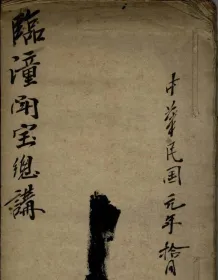 中華民国元年拾月
臨潼闘宝總講